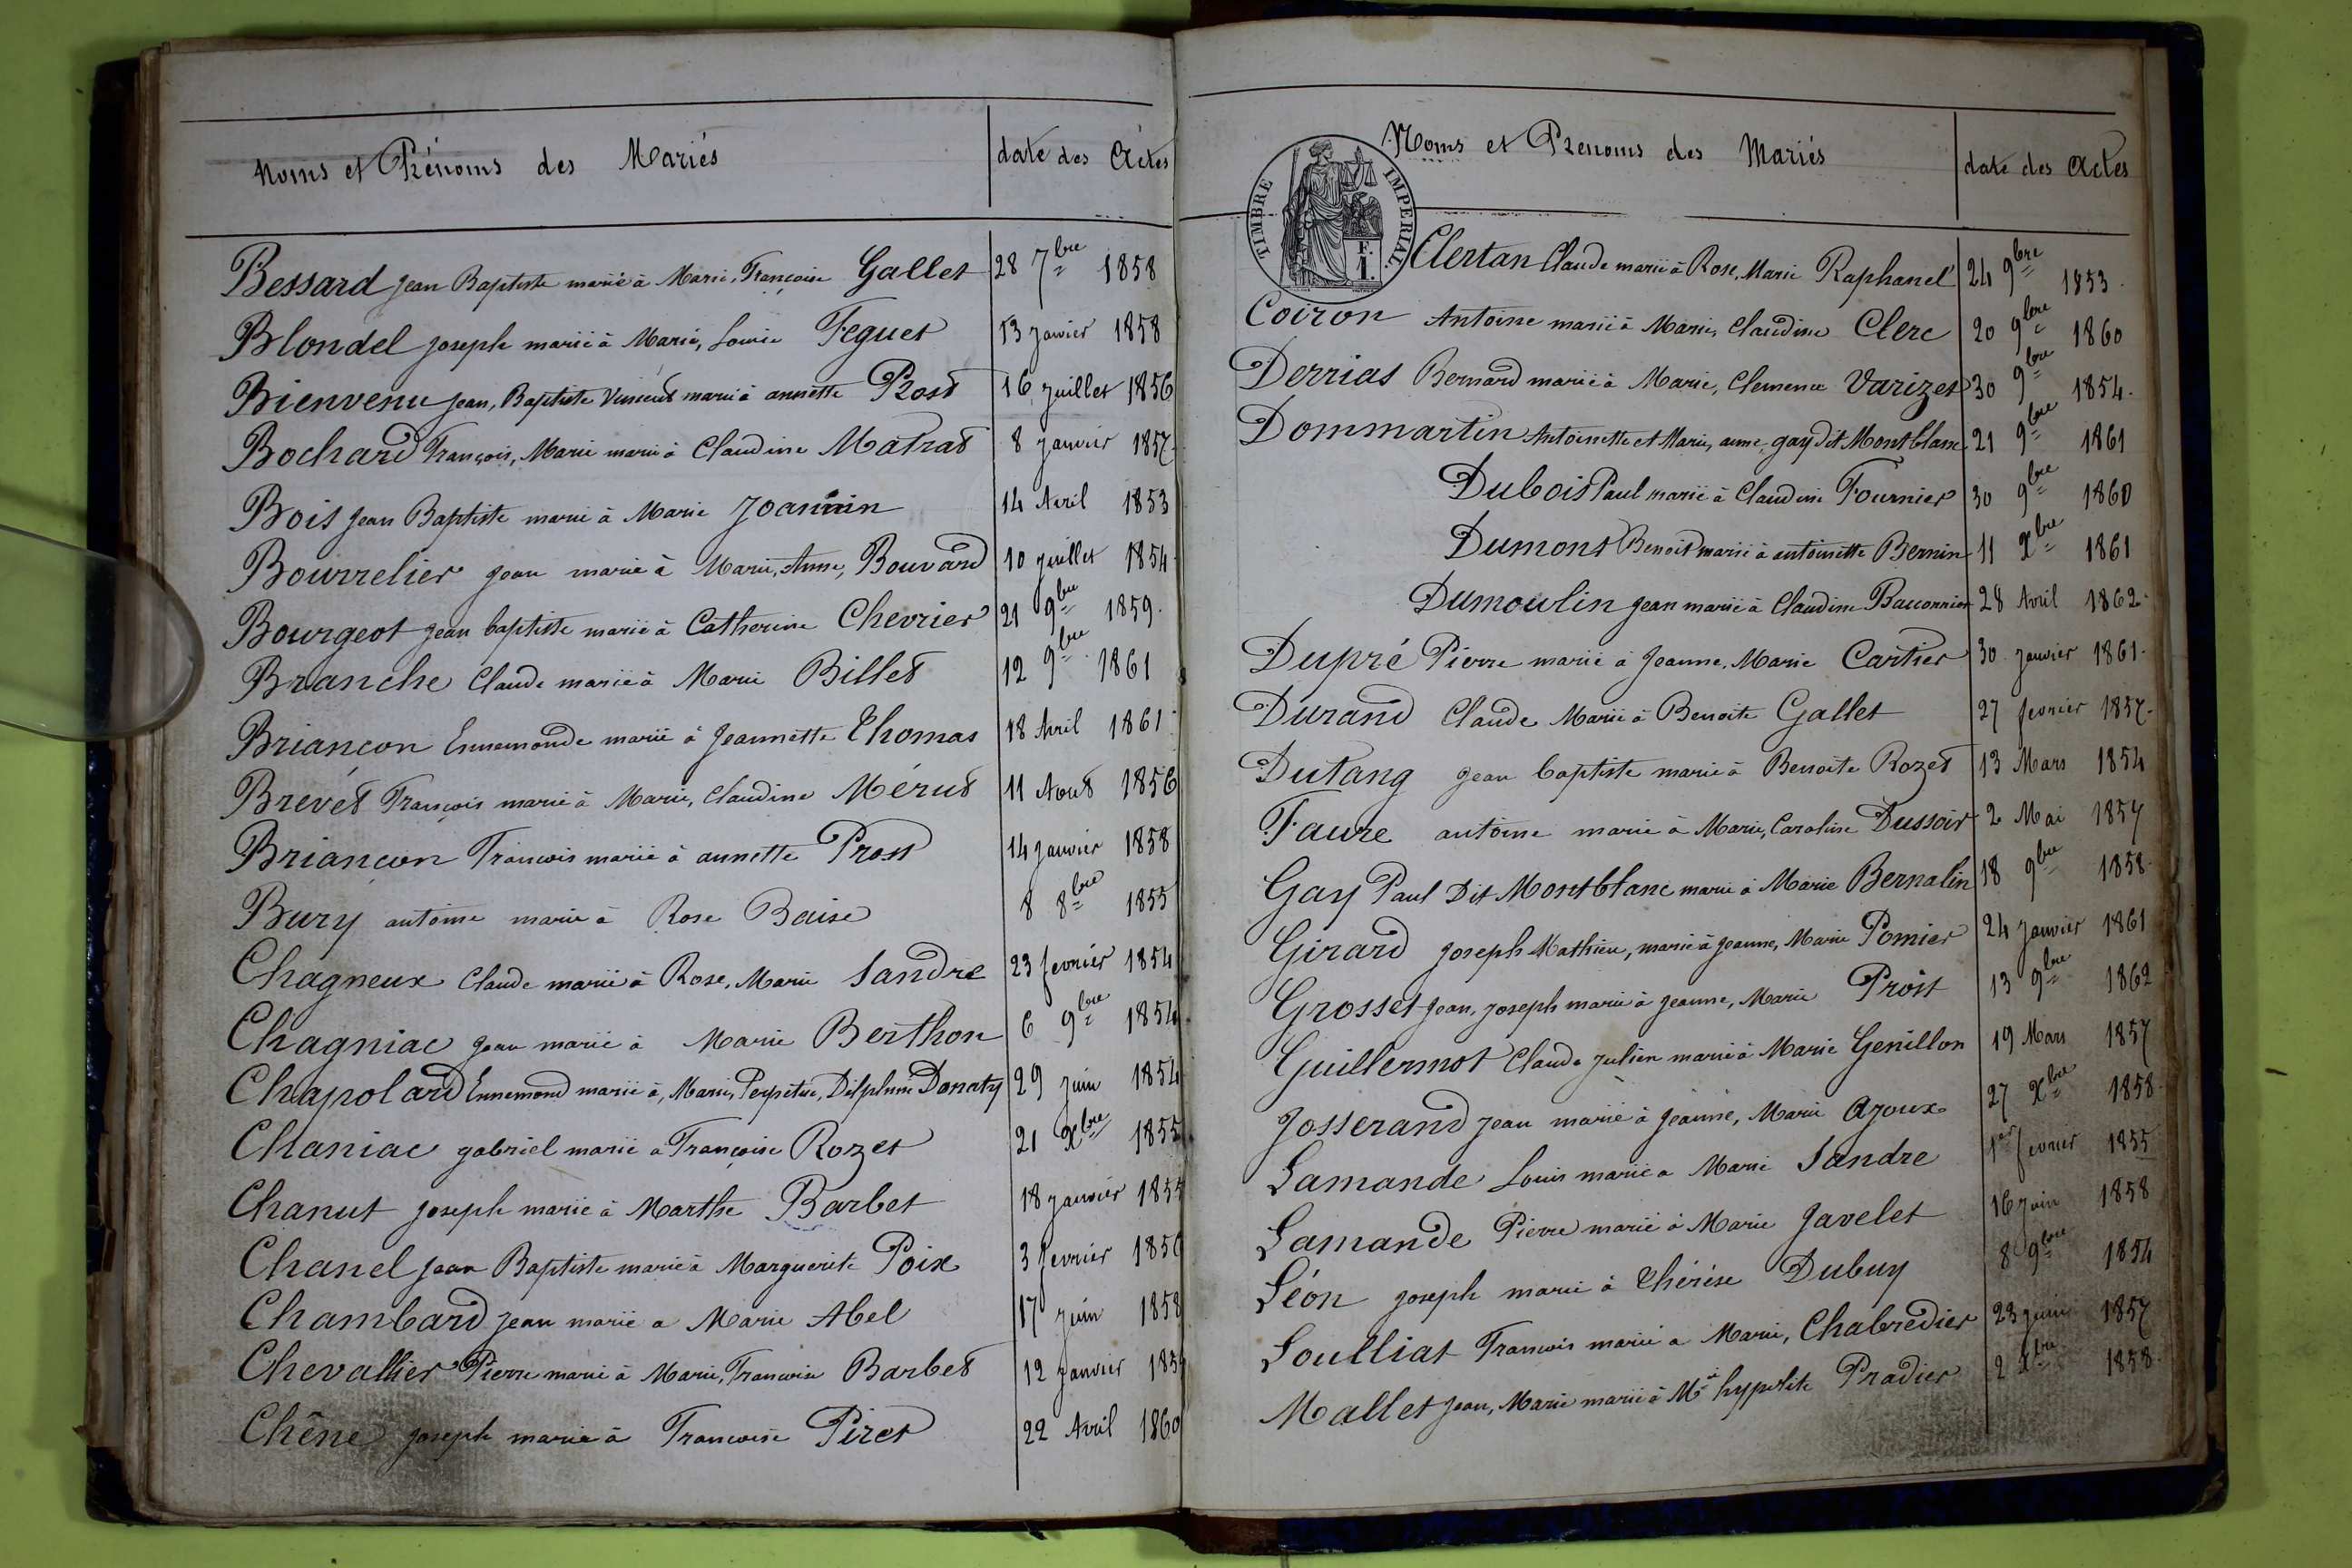 Noms et Prénoms des Mariés date des Actes
Bessard Jean Baptiste marié à Marie, Françoise Gallet 28 7bre 1858
Blondel Joseph marié à Marie, Louise Feguet 13 Janvier 1858
Bienvenu Jean, Baptiste Vincent marié à annette Prost 16 Juillet 1856
Bochard François, Marie marié à Claudine Matrat 8 Janvier 1857
Bois Jean Baptiste marié à Marie Joannin 14 Avril 1853
Bourrelier Jean marié à Marie, Anne, Bouvard 10 Juillet 1854
Bourgeot Jean baptiste marié à Catherine Chevrier 21 9bre 1859.
Branche Claude marié à Marie Billet 12 9bre 1861
Briançon Ennemonde marié à Jeannette Thomas 18 Avril 1861
Brevét François marié à Marie, Claudine Mérut 11 Aout 1856
Briançon François marié à annette Prost 14 Janvier 1858
Bury antoine marié à Rose Baise 8 8bre 1855
Chagneux Claude marié à Rose, Marie Sandre 23 fevrier 1854
Chagniac Jean marié à Marie Berthon 6 9bre 1854
Chapolard Ennemond marié à, Marie, Perpétue, Delphine Donaty 29 Juin 1854
Chaniac gabriel marié a Françoise Rozet 21 Xbre 1855
Chanut Joseph marié à Marthe Barbet 18 Janvier 1855
Chanel Jean Baptiste marié à Marguerite Poix 3 fevrier 1856
Chambard Jean marié a Marie Abel 17 Juin 1858
Chevallier Pierre marié à Marie, Francoise Barbet 12 Janvier
Chêne Joseph marié à Francoise Piret 22 Avril 1860
TIMBRE IMPERIAL
F.
1.
Noms et Prenoms des Mariés date des Actes
Clertan Claude marié à Rose, Marie Raphanel 24 9bre 1853.
Coiron Antoine marié à Marie, Claudine Clerc 20 9bre 1860
Derrias Bernard marié à Marie, Clemence Varizet 30 9bre 1854.
Dommartin Antoinette et Marie, anne, gay dit Montblanc 21 9bre 1861
Dubois Paul marié à Claudine Fournier 30 9bre 1860
Dumont Benoit marié à antoinette Bernin 11 Xbre 1861
Dumoulin Jean marié à Claudine Bauconnier 28 Avril 1862
Dupré Pierre marié à Jeanne, Marie Cartier 30 Janvier 1861.
Durand Claude Marié à Benoite Gallet 27 fevrier 1857.
Dutang Jean baptiste marié à Benoite Rozet 13 Mars 1854
Faure antoine marié à Marie, Caroline Dussoir 2 Mai 1857
Gay Paul Dit Montblanc marié à Marie Bernalin 18 9bre 1858
Girard Joseph Mathieu, marié à Jeanne, Marie Pomier 24 Janvier 1861
Grosset Jean, Joseph marié à Jeanne, Marie Prost 13 9bre 1862
Guillermot Claude Julien marié à Marie Genillon 19 Mars 1857
Josserand Jean marié à Jeanne, Marie Ajoux 27 Xbre 1858
Lamande Louis marié a Marie Sandre 1er fevrier 1855
Lamande Pierre marié à Marie Javelet 16 Juin 1858
Léon Joseph marié à Thérèse Dubuy 8 9bre 1854
Soulliat Francois marié a Marie, Chabredier 23 Juin 1857
Mallet Jean, Marie marié à Mie hypolite Pradier 2 Xbre 1858